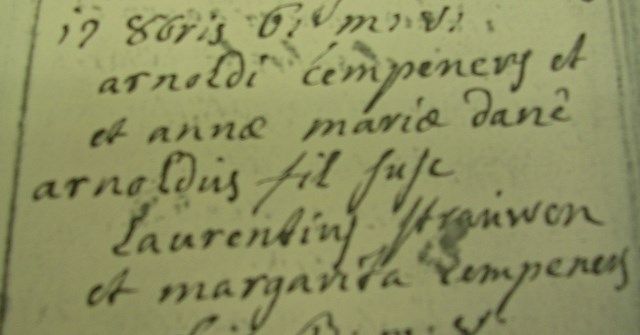 17 8bris
arnoldi cempeners et
et annæ mariæ danê
arnoldus fil susc
Laurentius strauwen
et margarita cempeners